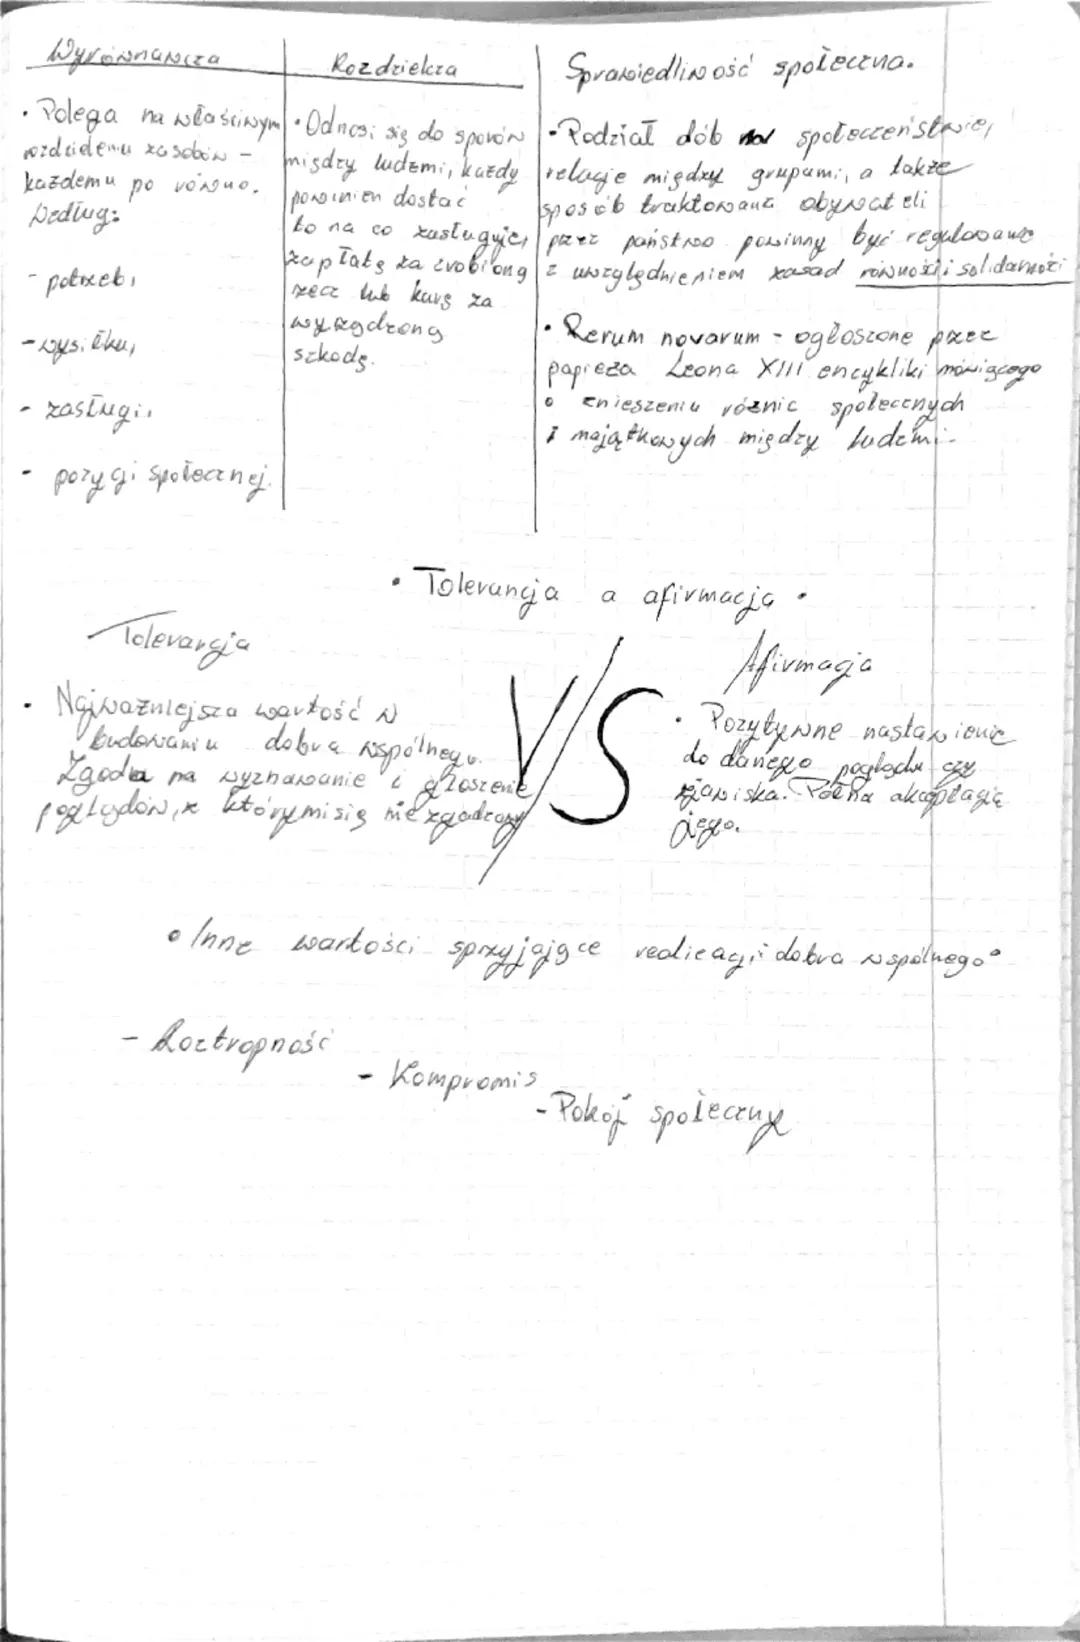 Wyrównawcza
• Polega na właściwym
rozdzieleniu zasobów -
każdemu po równo.
Według:
- potrzeb,
- wysiłku,
- zasługi,
- pozycji społecznej.
Rozdzielcza
• Odnosi się do sporów
między ludźmi, każdy
powinien dostać
to na co zasługuje,
zapłatę za zrobioną
rzecz lub karę za
wyrządzoną
szkodę.
Sprawiedliwość społeczna.
• Podział dób społeczeństwie,
relacje między grupami, a także
sposób traktowana obywateli
przez państwo powinny być regulowane
z uwzględnieniem zasad równości i solidarności
• Rerum novarum - ogłoszone przez
papieża Leona XIII encykliki mówiącego
o znieszeniu różnic społecznych
i majątkowych między ludźmi.
• Tolerancja a afirmacja •
Tolerancja
• Najważniejsza wartość w
budowaniu dobra wspólnego.
Zgoda na wyznawanie i głoszenie
poglądów, z którymi się nie zgadzamy
VS
Afirmacja
• Pozytywne nastawienie
do danego poglądu czy
zjawiska. Pełna akceptacja
jego.
• Inne wartości sprzyjające realizacji dobra wspólnego •
- Roztropność
- Kompromis
- Pokój społeczny